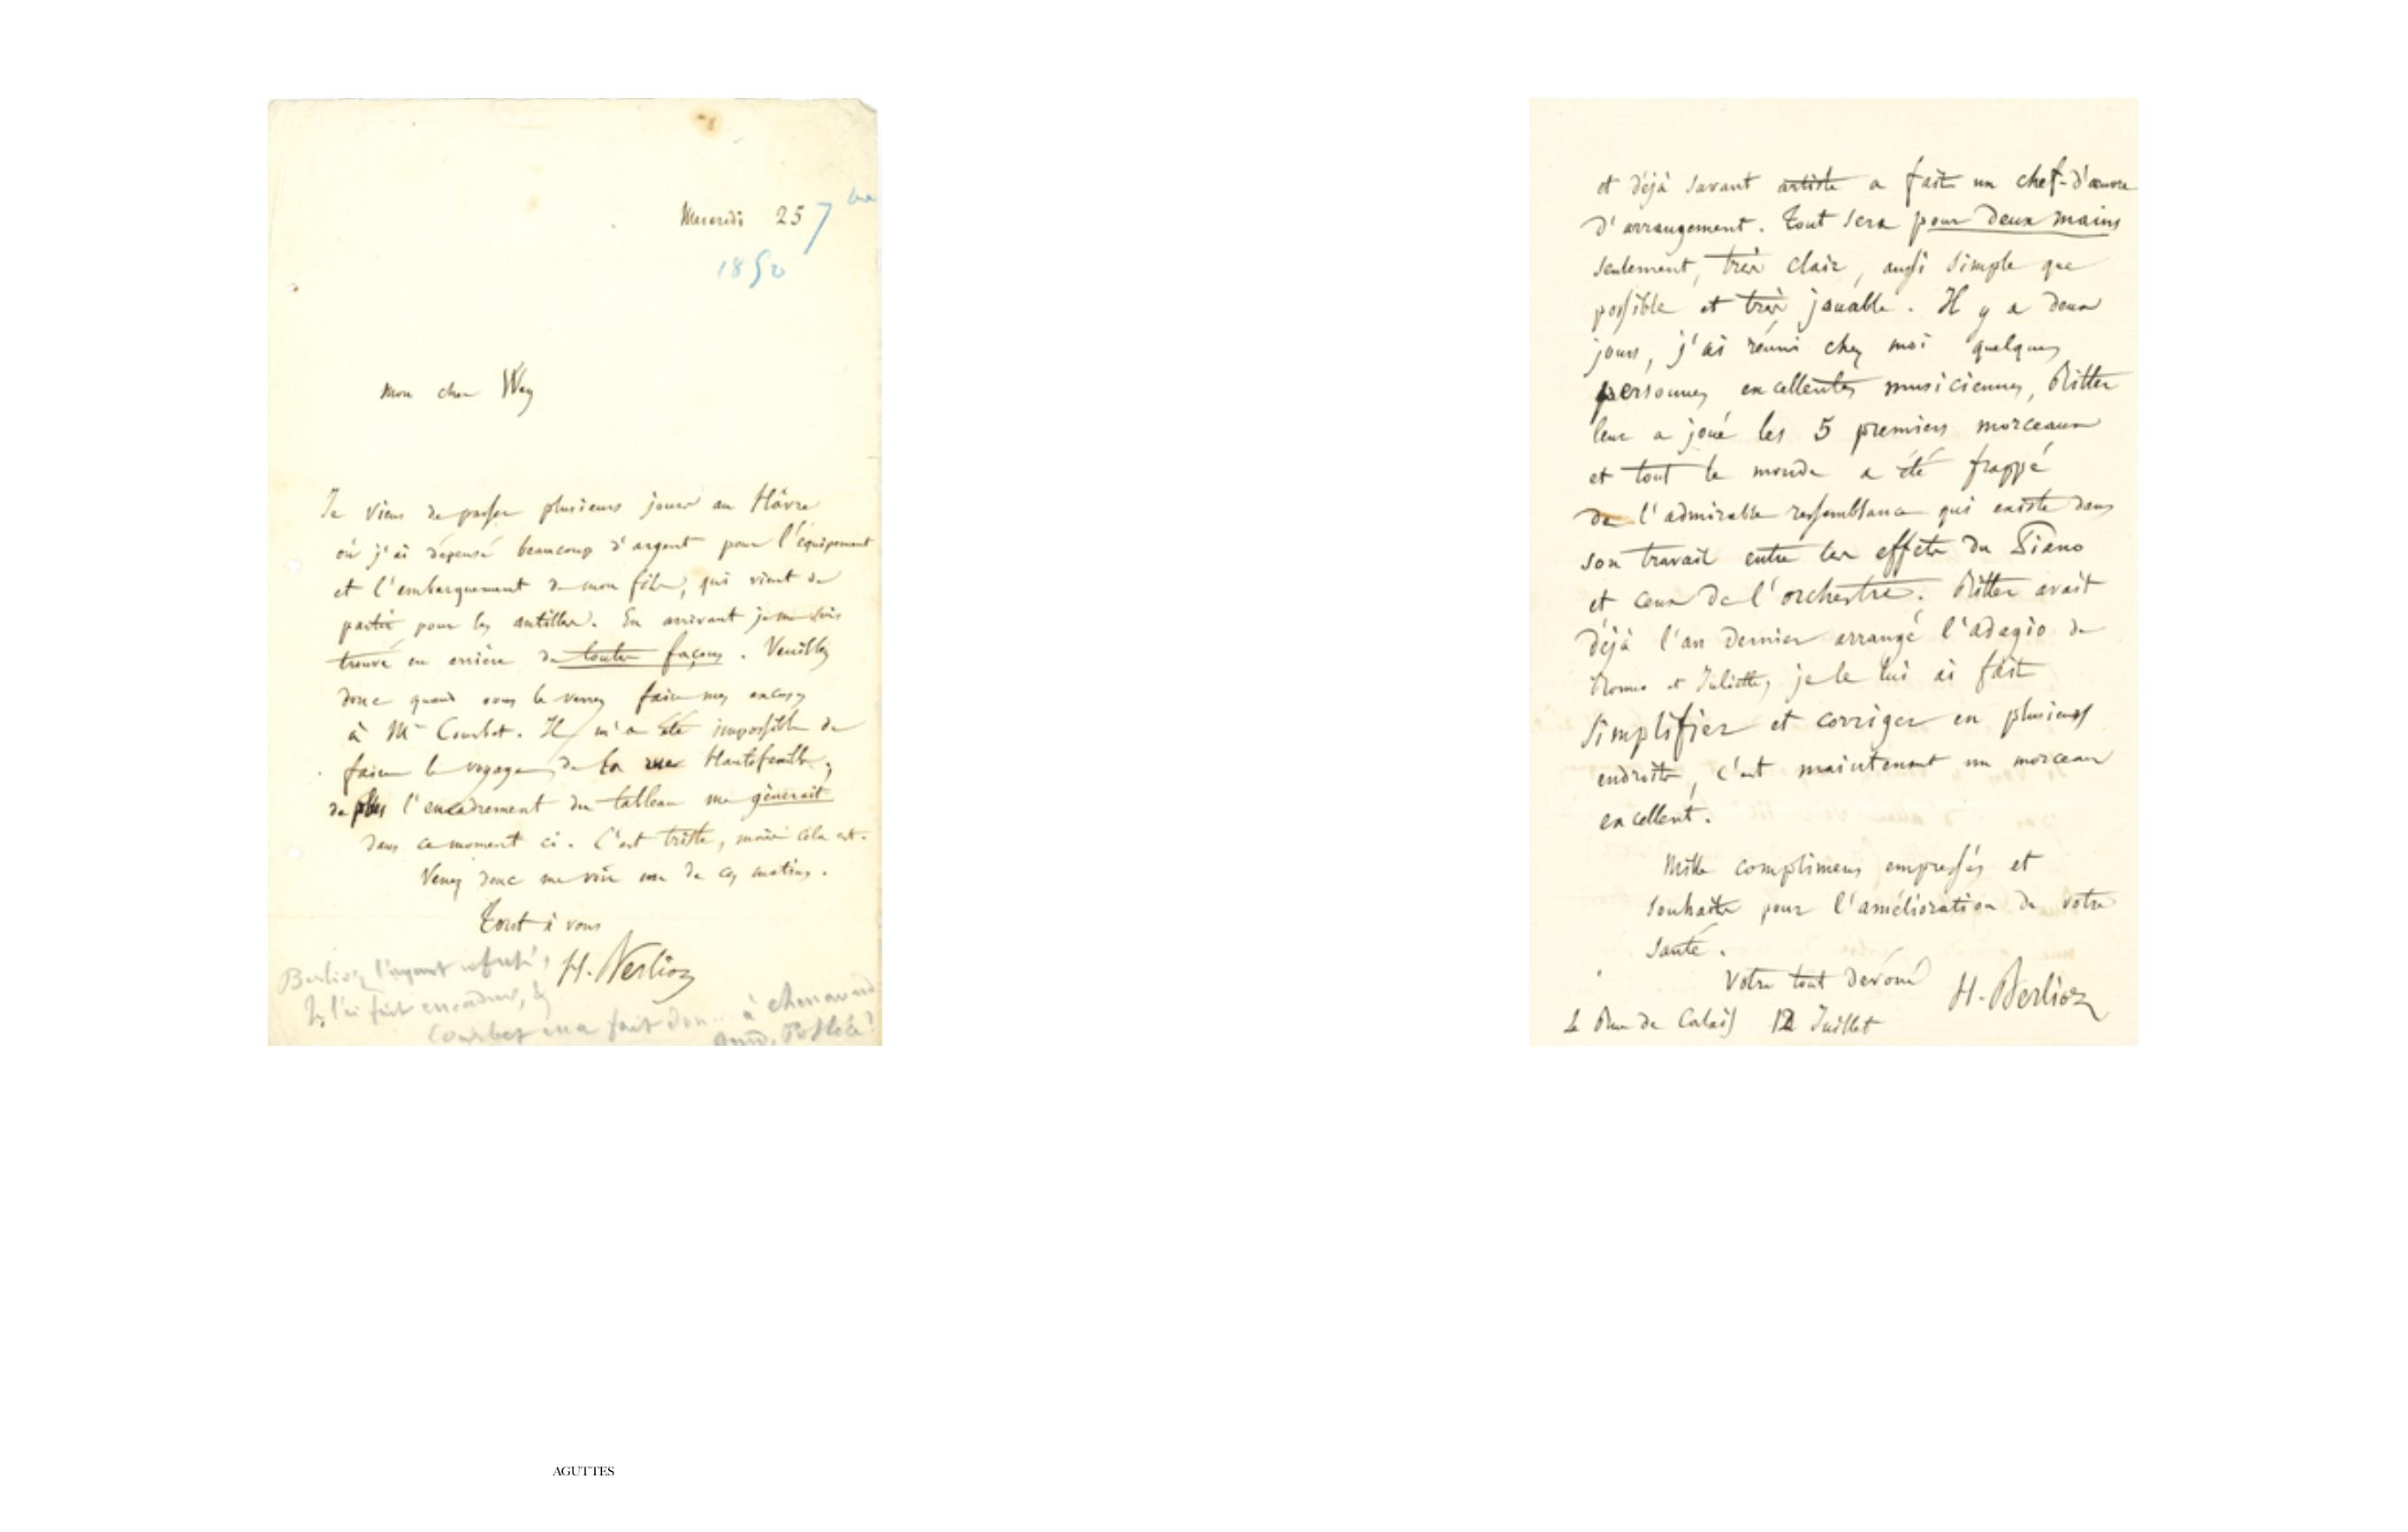 Mercredi 25 7bre
1850
Mon cher Wey
Je viens de passer plusieurs jours au Hâvre
où j'ai dépensé beaucoup d'argent pour l'équipement
et l'embarquement de mon fils, qui vient de
partir pour les antilles. En arrivant je me suis
trouvé en arrière de toutes façons. Veuillez
donc quand vous le verrez faire mes excuses
à Mr Courbet. Il m'a été impossible de
faire le voyage de la rue Hautefeuille;
de plus l'encadrement du tableau me gênerait
dans ce moment ci. C'est triste, mais cela est.
Venez donc me voir un de ces matins.
Tout à vous
H. Berlioz
Berlioz l'ayant refusé,
Je l'ai fait encadrer, &
Courbet en a fait don... à Chenavard
et déjà savant artiste a fait un chef-d'œuvre
d'arrangement. Tout sera pour deux mains
seulement, très clair, aussi simple que
possible et très jouable. Il y a deux
jours, j'ai réuni chez moi quelques
personnes excellentes musiciennes, Ritter
leur a joué les 5 premiers morceaux
et tout le monde a été frappé
de l'admirable ressemblance qui existe dans
son travail entre les effets du Piano
et ceux de l'orchestre. Ritter avait
déjà l'an dernier arrangé l'adagio de
Romeo et Juliette, je le lui ai fait
simplifier et corriger en plusieurs
endroits, c'est maintenant un morceau
excellent.
Mille complimens empressés et
souhaits pour l'amélioration de votre
santé.
Votre tout dévoué
H. Berlioz
4 Rue de Calais 12 Juillet
AGUTTES